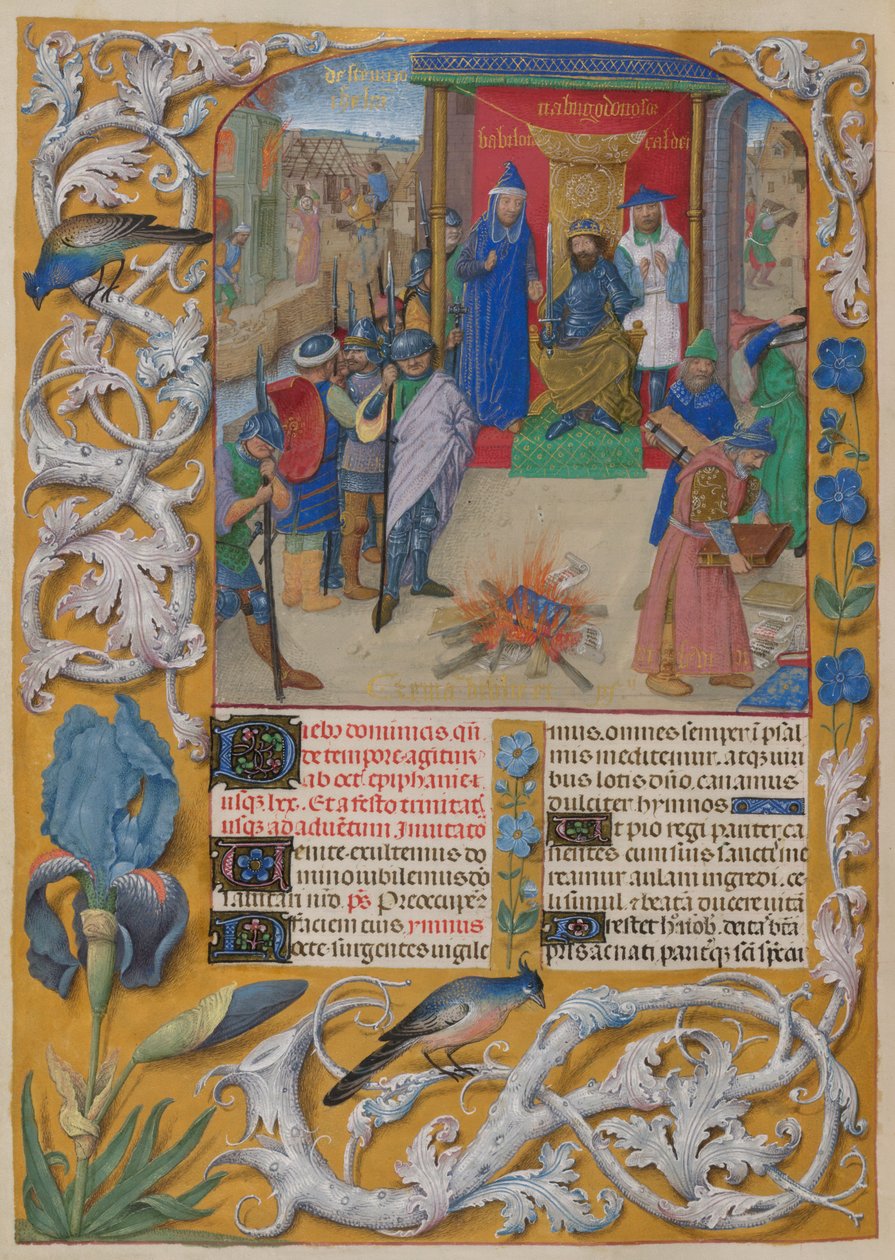 nabugodonosor
babilon
caldei
Diebus dominicis, qn̄
de tempore agitur
ab oct̄ epiphanie &
usqȝ lxx. Et a festo trinitatꝭ
usqȝ ad aduentum Inuitatō
Uenite. exultemus do
mino iubilemus do
salutari nr̄o. ps̄ Preoccupem⁹
faciem eius. ymnus
Nocte surgentes uigile
mus. omnes semper ī psal
mis meditemur. atqȝ uiri
bus totis dn̄o canamus
dulciter hymnos
Ut pio regi pariter ca
nentes cum suis sanctꝭ me
reamur aulam ingredi. ce
li simul & beatā ducere uitā
Prestet h̓ nob̓ deitas btā
pr̄is ac nati pariterqȝ sc̄i spū